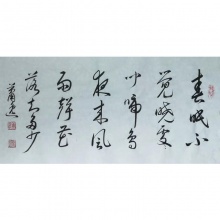 春眠不
覺曉處
處啼鳥
夜来風
雨聲花
落知多少